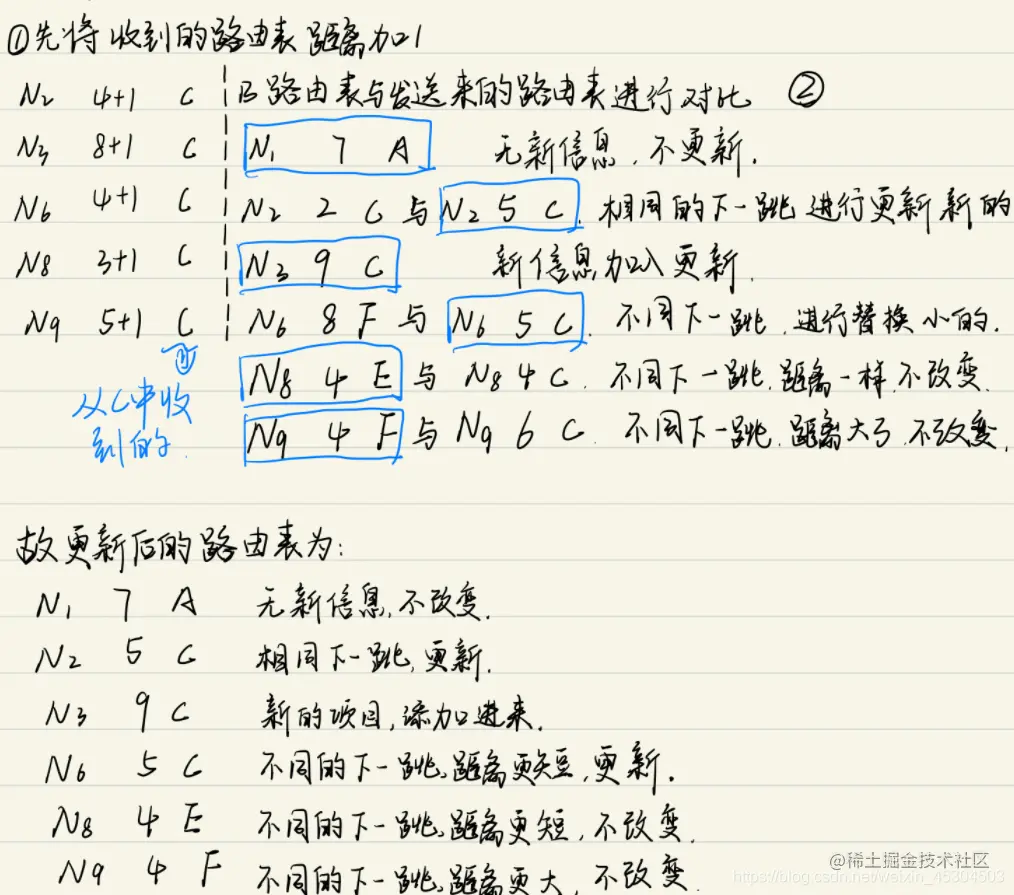 ①先将收到的路由表距离加1
N2 4+1 C B路由表与发送来的路由表进行对比 ②
N3 8+1 C N1 7 A 无新信息,不更新.
N6 4+1 C N2 2 C 与 N2 5 C. 相同的下一跳进行更新新的
N8 3+1 C N3 9 C 新信息加入更新.
N9 5+1 C N6 8 F 与 N6 5 C. 不同下一跳,进行替换小的.
① N8 4 E 与 N8 4 C. 不同下一跳,距离一样,不改变.
从C中收 N9 4 F 与 N9 6 C. 不同下一跳,距离大了,不改变.
到的.
故更新后的路由表为:
N1 7 A 无新信息,不改变.
N2 5 C 相同下一跳,更新.
N3 9 C 新的项目,添加进来.
N6 5 C 不同的下一跳,距离更短,更新.
N8 4 E 不同的下一跳,距离更短,不改变.
N9 4 F 不同的下一跳,距离更大,不改变.
@稀土掘金技术社区
https://blog.csdn.net/weixin_45304503